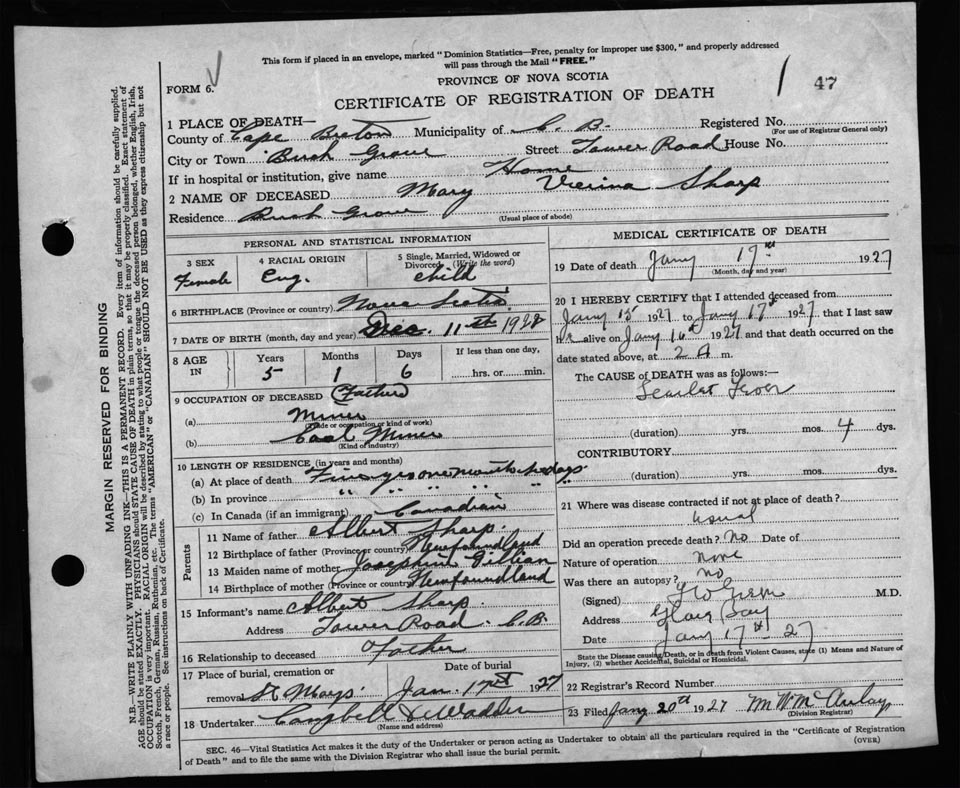 This form if placed in an envelope, marked "Dominion Statistics—Free, penalty for improper use $300," and properly addressed
will pass through the Mail "FREE."
FORM 6.
PROVINCE OF NOVA SCOTIA
47
CERTIFICATE OF REGISTRATION OF DEATH
1 PLACE OF DEATH—
County of Cape Breton Municipality of C. B. Registered No.
(For use of Registrar General only)
City or Town Bush Grove Street Tower Road House No.
If in hospital or institution, give name Home
2 NAME OF DECEASED Mary Verina Sharp
Residence Bush Grove
(Usual place of abode)
PERSONAL AND STATISTICAL INFORMATION
3 SEX 4 RACIAL ORIGIN 5 Single, Married, Widowed or
Divorced (Write the word)
Female Eng. child
6 BIRTHPLACE (Province or country) Nova Scotia
7 DATE OF BIRTH (month, day and year) Dec. 11th
8 AGE IN Years Months Days If less than one day,
5 1 6 hrs. or min.
9 OCCUPATION OF DECEASED (Father)
(a) Miner
(Trade or occupation or kind of work)
(b) Coal Miner
(Kind of industry)
10 LENGTH OF RESIDENCE (in years and months)
(a) At place of death Five yrs one month days
(b) In province " " " " "
(c) In Canada (if an immigrant) Canadian
Parents
11 Name of father Albert Sharp.
12 Birthplace of father (Province or country) Newfoundland
13 Maiden name of mother Josephine
14 Birthplace of mother (Province or country) Newfoundland
15 Informant's name Albert Sharp.
Address Tower Road, C.B.
16 Relationship to deceased Father
17 Place of burial, cremation or Date of burial
removal St Marys. Jan. 17th 1927
18 Undertaker Campbell &
(Name and address)
MEDICAL CERTIFICATE OF DEATH
19 Date of death Jany 17th 1927
(Month, day and year)
20 I HEREBY CERTIFY that I attended deceased from
Jany 15 1927 to Jany 17th 1927, that I last saw
alive on Jany 16th 1927 and that death occurred on the
date stated above, at 2 A m.
The CAUSE of DEATH was as follows:—
Scarlet Fever
(duration) yrs. mos. 4 dys.
CONTRIBUTORY
(duration) yrs. mos. dys.
21 Where was disease contracted if not at place of death?
usual
Did an operation precede death? No Date of
Nature of operation None
Was there an autopsy? no
(Signed) M.D.
Address Glace Bay
Date Jany 17th 27
State the Disease causing Death, or in death from Violent Causes, state (1) Means and Nature of
Injury, (2) whether Accidental, Suicidal or Homicidal.
22 Registrar's Record Number
23 Filed Jany 20th 1927 M W McAulay
(Division Registrar)
SEC. 46—Vital Statistics Act makes it the duty of the Undertaker or person acting as Undertaker to obtain all the particulars required in the "Certificate of Registration
of Death" and to file the same with the Division Registrar who shall issue the burial permit.
(OVER)
MARGIN RESERVED FOR BINDING
N.B.—WRITE PLAINLY WITH UNFADING INK—THIS IS A PERMANENT RECORD. Every item of information should be carefully supplied.
AGE should be stated EXACTLY. PHYSICIANS should STATE CAUSE OF DEATH in plain terms, so that it may be properly classified. Exact statement of
OCCUPATION is very important. RACIAL ORIGIN will be described by stating to what people or tongue the deceased person belonged, whether English, Irish,
Scotch, French, German, Russian, Ruthenian, etc. The terms "AMERICAN" or "CANADIAN" SHOULD NOT BE USED as they express citizenship but not
a race or people. See instructions on back of Certificate.